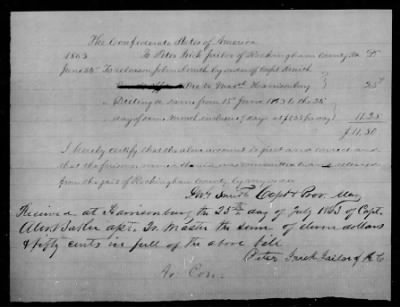 The Confederate States of America
1863 To Peter Irick Jailor of Rockingham County Va Dr
June 25 To John Smith by order of Capt Smith
Harrisonburg 25
& Feeding the same from 15th June 1863 to the 25
day of same month inclusive days at per day 11.25
$11.50
I hereby certify that the above account is just and correct and
that the prisoner named therein was committed to & released
from the jail of Rockingham County by my order
Smith Capt & Prov. Mar
Received at Harrisonburg the 25th day of July 1863 of Capt.
Qr. Master the sum of eleven dollars
& fifty cents in full of the above bill
Peter Irick Jailor of R. C.